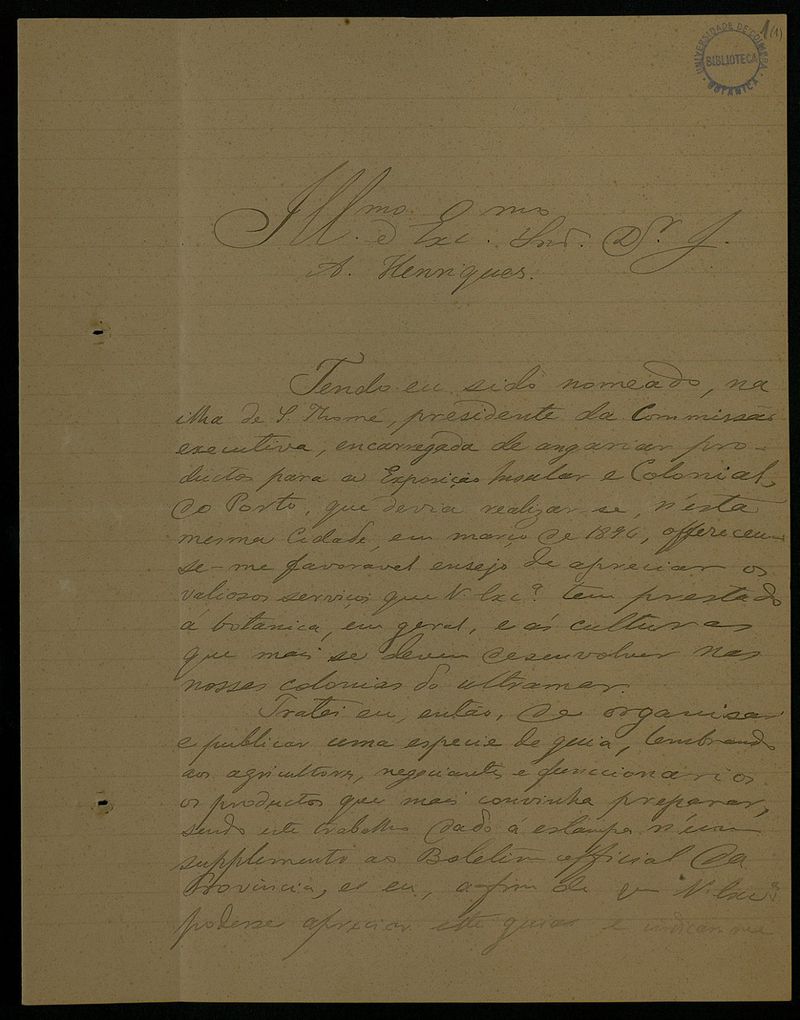 1 (1)
UNIVERSIDADE DE COIMBRA
BIBLIOTECA
BOTANICA
Ill.mo e Exc.mo Snr. Dr. J.
A. Henriques.
Tendo eu sido nomeado, na
ilha de S. Thomé, presidente da Commissão
executiva, encarregada de angariar pro-
ductos para a Exposição Insular e Colonial,
do Porto, que devia realizar-se, n'esta
mesma cidade, em março de 1894, offereceu-
se-me favoravel ensejo de apreciar os
valiosos serviços que V. Exc.ª tem prestado
á botanica, em geral, e ás culturas
que mais se devem desenvolver nas
nossas colonias do ultramar.
Tratei eu, então, de organisar
e publicar uma especie de guia, lembrando
aos agricultores, negociantes e funccionarios
os productos que mais convinha preparar,
sendo este trabalho dado á estampa n'um
supplemento ao Boletim official da
Provincia, e eu, a-fim de que V. Exc.ª
podesse apreciar este guia e indicar-me